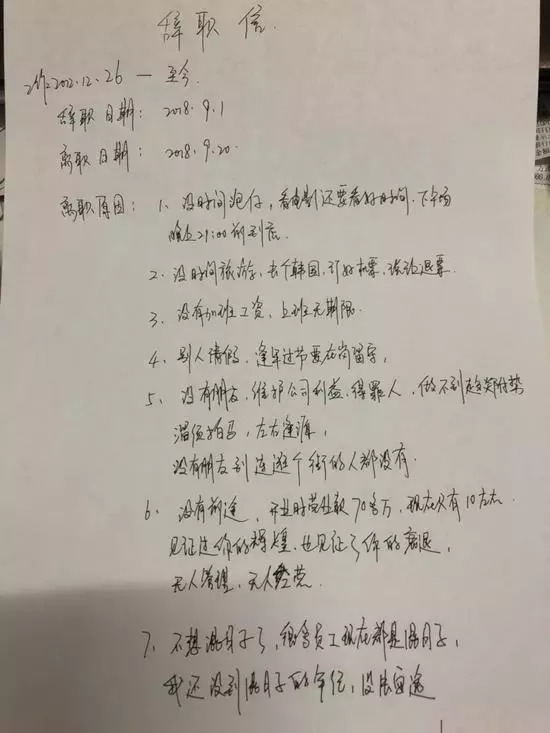 辞职信.
2012.12.26 — 至今.
辞职日期: 2018.9.1
离职日期: 2018.9.20.
离职原因: 1、没时间泡仔,看电影还要看好时间.下午场
晚上21:00前到底.
2、没时间旅游,去个韩国,订好机票,强行退票.
3、没有加班工资,上班无期限.
4、别人请假,逢年过节要在岗留守,
5、没有朋友,维护公司利益,得罪人,做不到趋炎附势
溜须拍马,左右逢源,
没有朋友到连逛个街的人都没有.
6、没有前途,开业时营业款70多万,现在只有10左右
见证过你的辉煌,也见证了你的衰退,
无人管理,无人经营.
7、不想混日子了,很多员工现在都是混日子,
我还没到混日子的年纪,没法